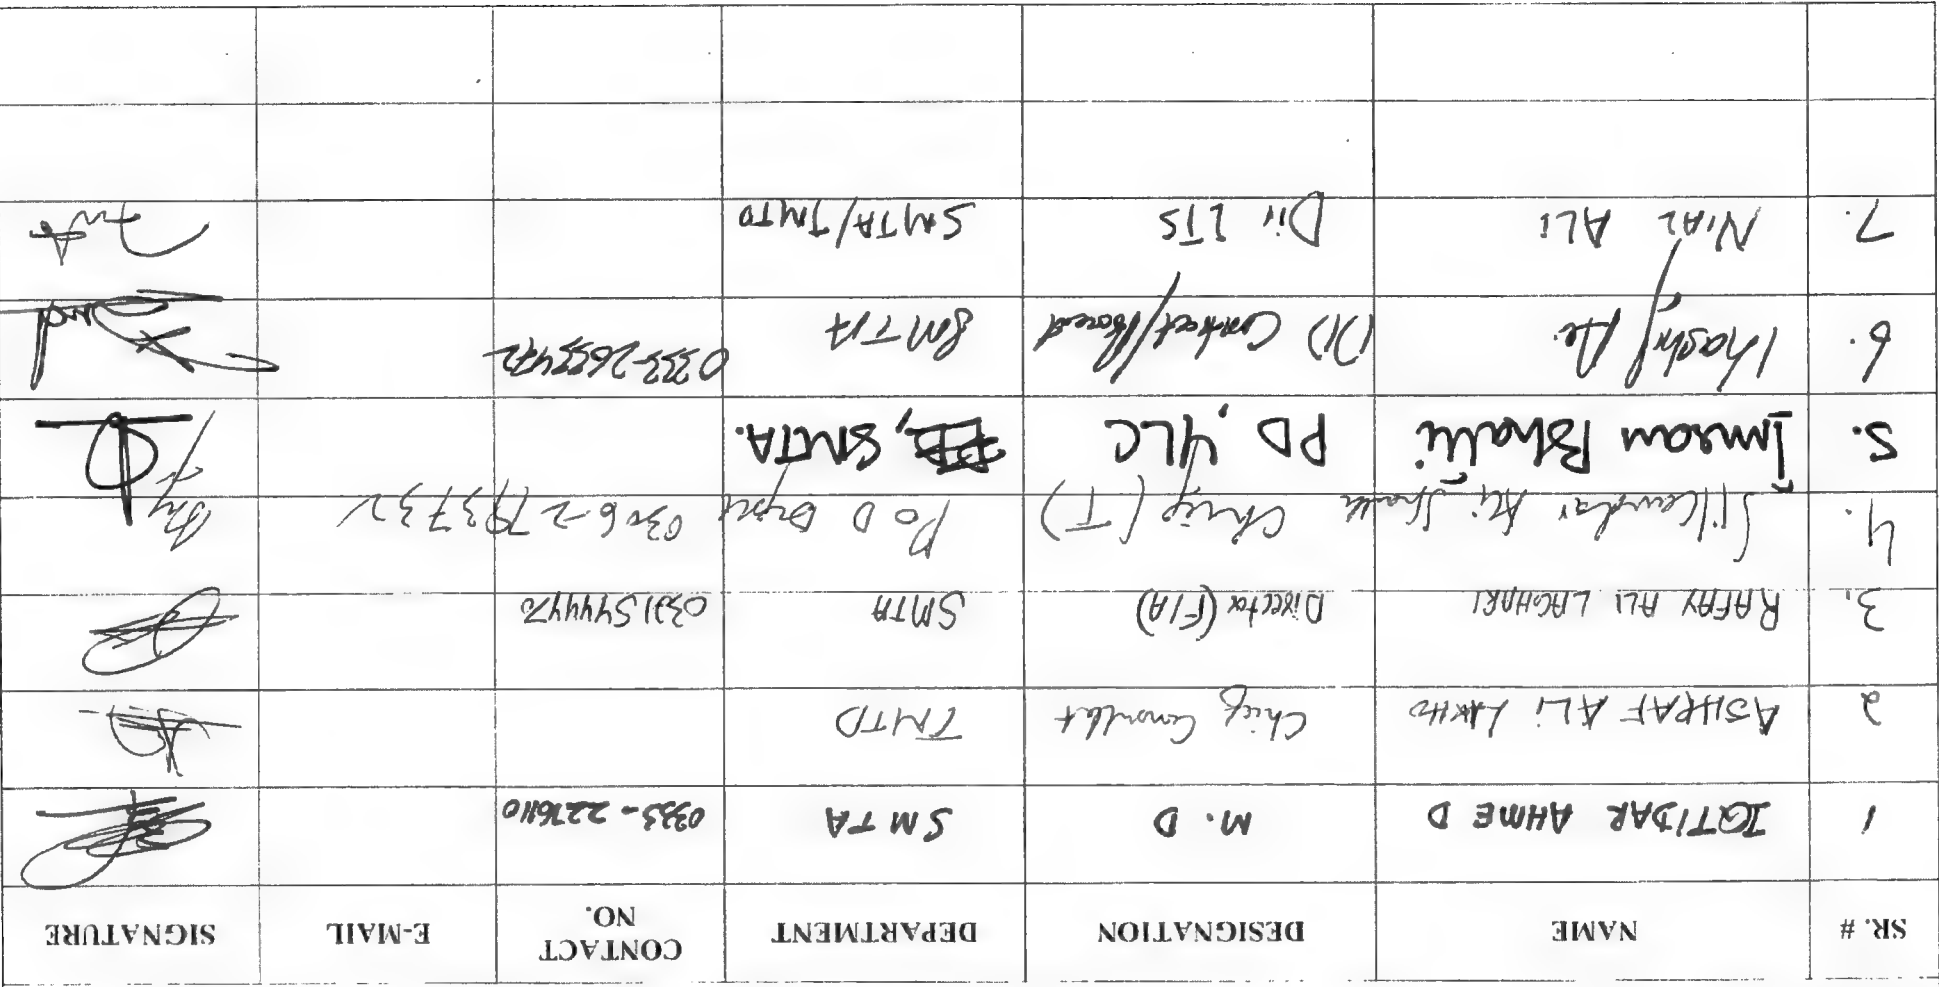 SR. # NAME DESIGNATION DEPARTMENT CONTACT NO. E-MAIL SIGNATURE
1 IQTIDAR AHMED M.D SMTA 0333-2276110
2 ASHRAF ALI LAKHO Chief Consultant TMTD
3. RAFAY ALI LAGHARI Director (F/A) SMTA 03315444470
4. Sikandar Ali Chief (T) P o D 0306-2793732
5. Imran Bhatti PD, YLC SMTA.
6. Khashif Ali DD Contract/Board SMTA 0333-2655472
7. NIAZ ALI Dir ITS SMTA/TMTD